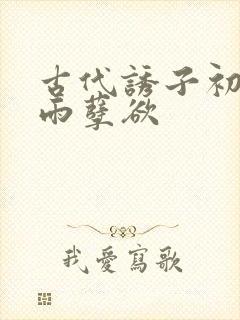 古代誘子初
雨孽欲
我愛寫歌